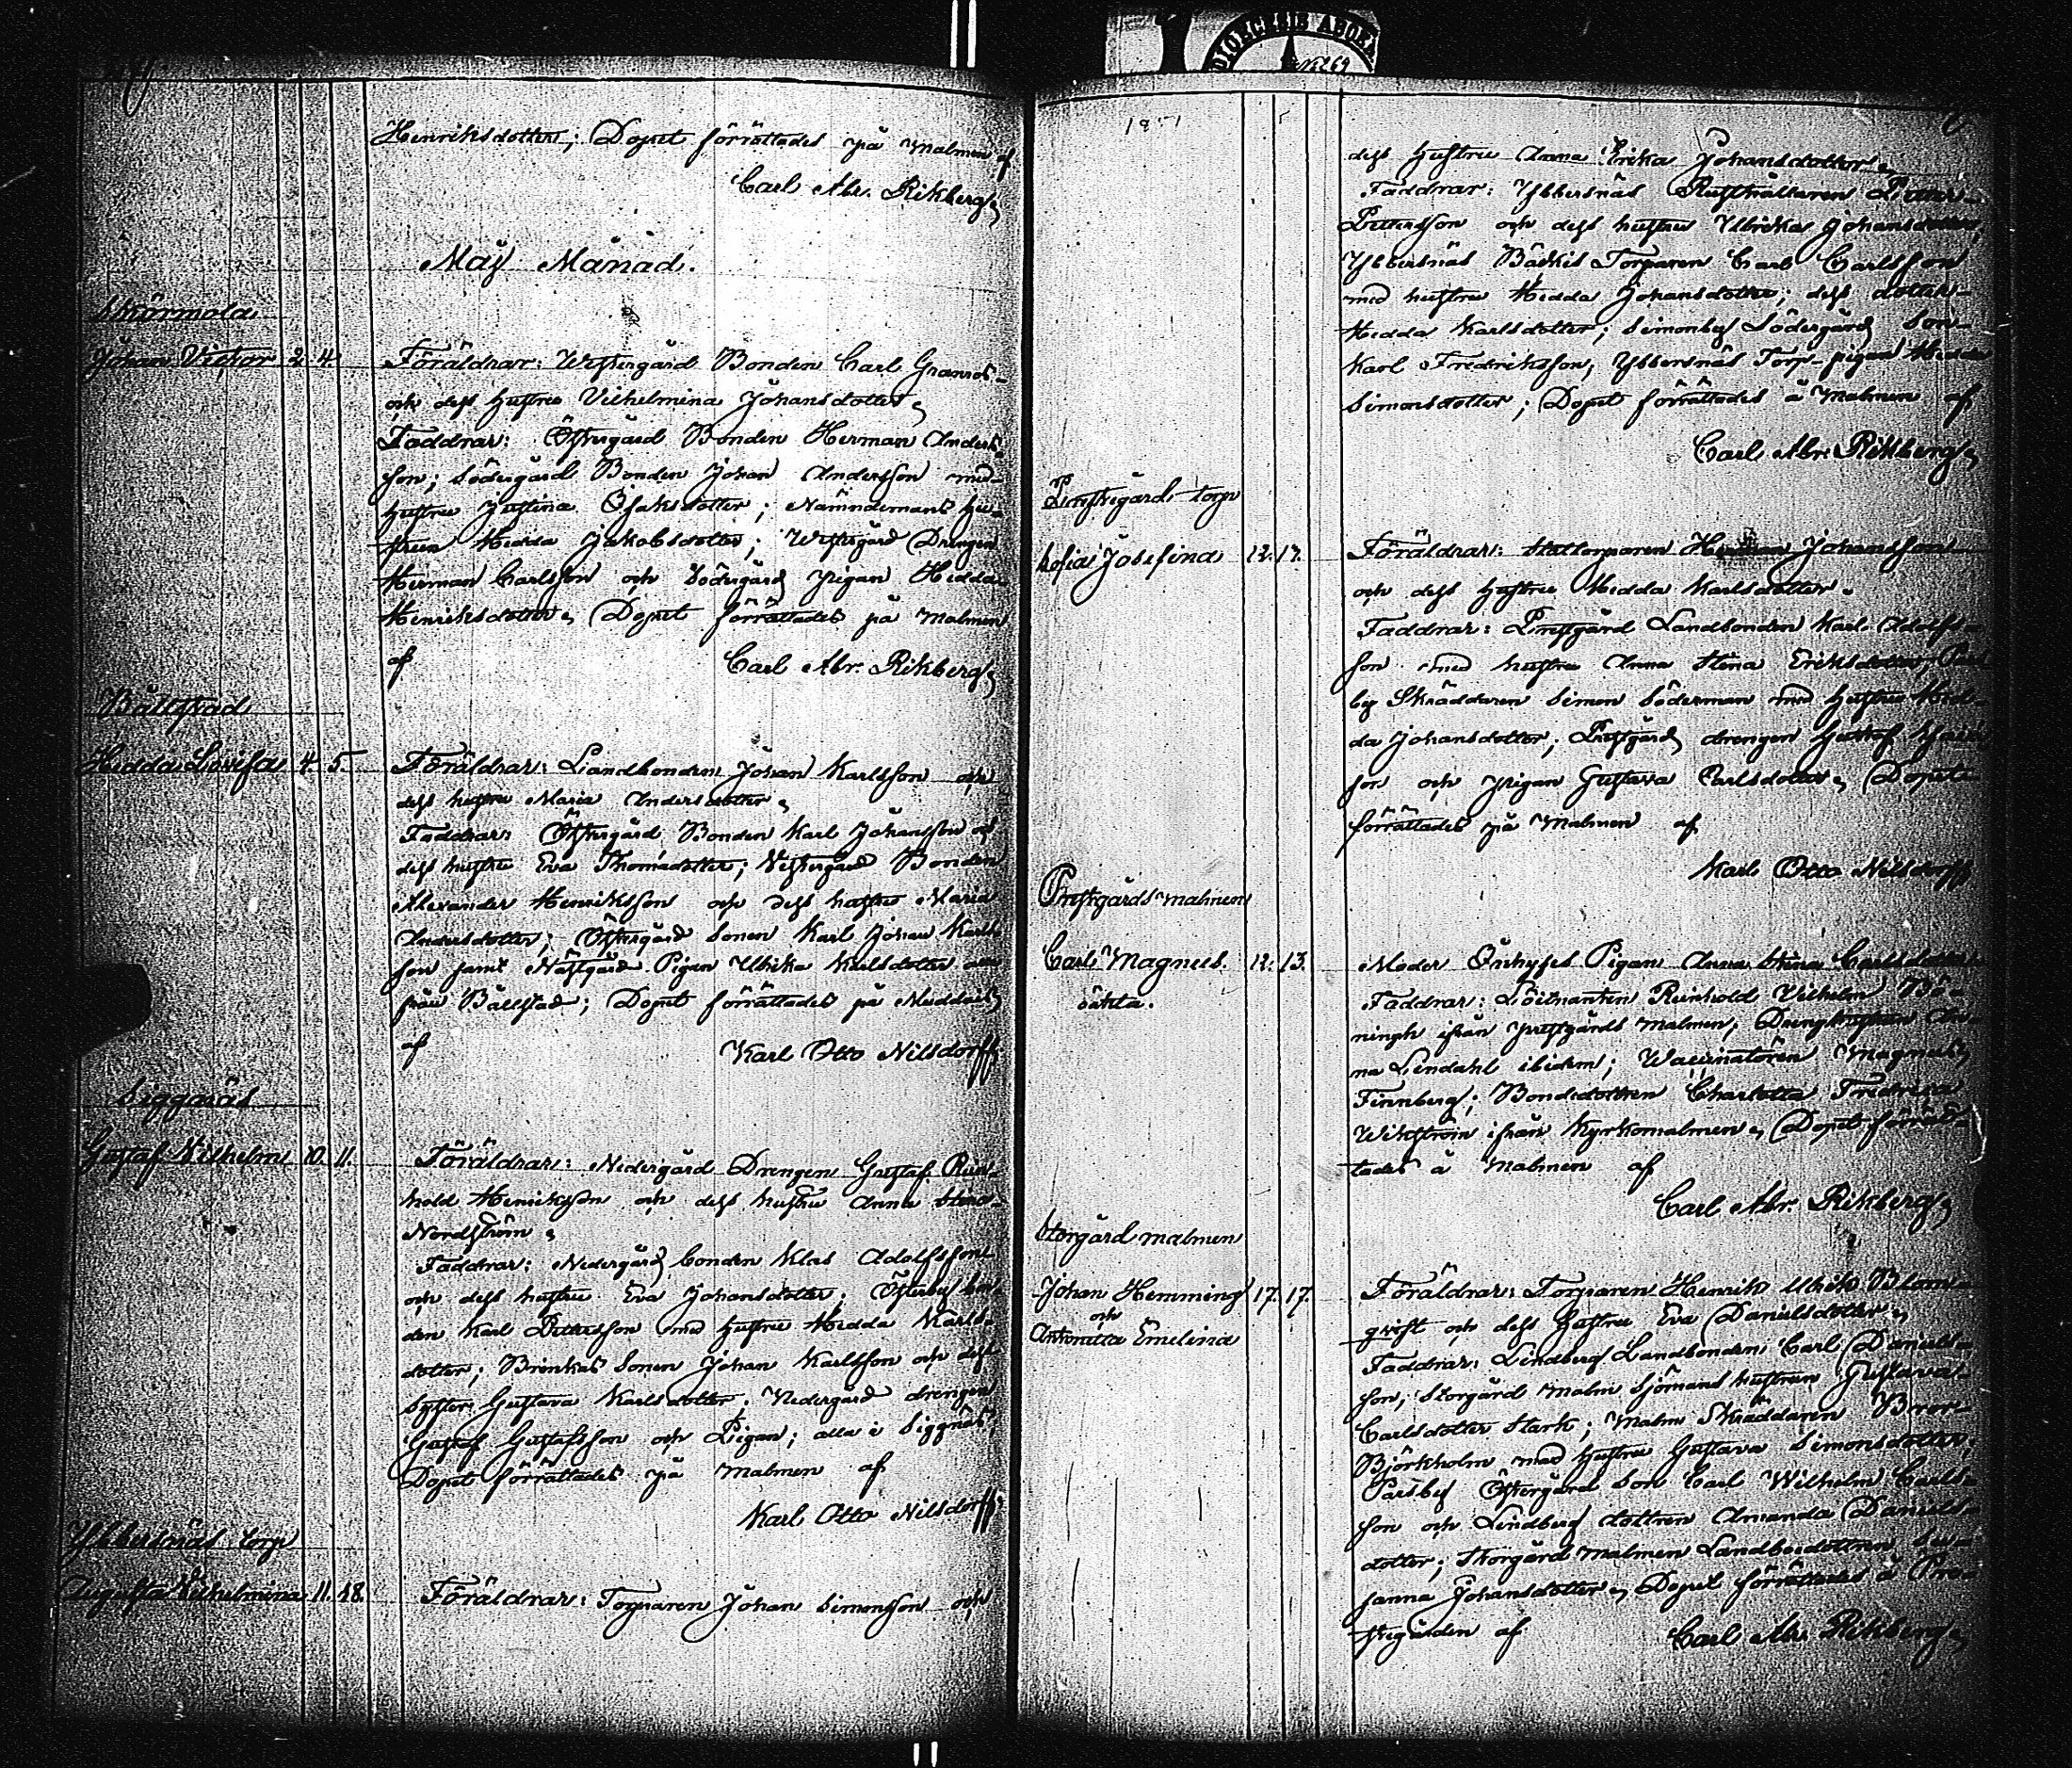 DIOECESIS ABOE
No 269
Henriksdotter; Dopet förrättades på Malmen af
Carl Abr. Rikberg
Maij Månad.
Skärmola
Johan Victor 2. 4. Föräldrar: Westergård Bonden Carl Granroš
och dess hustru Vilhelmina Johansdotter
Faddrar: Östergård Bonden Herman Anders-
son; Södergård Bonden Johan Andersson med
hustru Justina Isaksdotter; Nämndemans hu-
strun Hedda Jakobsdotter; Westergård Drengen
Herman Carlsson och Södergård pigan Hedda
Henriksdotter. Dopet förrättades på Malmen
af Carl Abr. Rikberg
Bällstad
Hedda Lovisa 4. 5. Föräldrar: Landbonden Johan Karlsson och
dess hustru Maria Andersdotter
Faddrar: Östergård Bonden Karl Johansson och
dess hustru Eva Thomadotter; Vestergård Bonden
Alexander Henriksson och dess hustru Maria
Andersdotter; Östergård Sonen Karl Johan Karls-
son samt Nästgård Pigan Ulrika Karlsdotter alla
från Bällstad; Dopet förrättades på Muddais
af Karl Otto Nilsdorff
Siggnäs
Gustaf Vilhelm 10. 11. Föräldrar: Nedergård Drengen Gustaf Rein-
hold Henriksson och dess hustru Anna Stina
Nordström
Faddrar: Nedergård bonden Klas Adolfsson
och dess hustru Eva Johansdotter; Österby bon-
den Karl Pettersson med hustru Hedda Karls-
dotter; Brinkas Sonen Johan Karlsson och dess
syster Gustava Karlsdotter; Nedergård drengen
Gustaf Gustafsson och Pigan; alla i Siggnäs;
Dopet förrättades på Malmen af
Karl Otto Nilsdorff
Ybbersnäs torp
Augusta Vilhelmina 11. 18. Föräldrar: Torparen Johan Simonsson och
1851
dess hustru Anna Erika Johansdotter
Faddrar: Ybbersnäs Rusthållaren Petter
Pettersson och dess hustru Ulrika Johansdotter,
Ybbersnäs Bäckis Torparen Carl Carlsson
med hustru Hedda Johansdotter; dess dotter
Hedda Karlsdotter; Simonby Södergård Son
Karl Fredriksson, Ybbersnäs Torp-pigan Hedda
Simonsdotter; Dopet förrättades å Malmen af
Carl Abr. Rikberg
Prestgårds torp
Sofia Josefina 12. 17. Föräldrar: Stattorparen Herman Johansson
och dess hustru Hedda Karlsdotter.
Faddrar: Prestgård Landbonden Karl Adolfs-
son med hustru Anna Stina Eriksdotter, Pars-
by Skräddaren Simon Söderman med hustru Hed-
da Johansdotter; Prestgård drengen Gustaf
son och pigan Gustava Carlsdotter. Dopet
förrättades på Malmen af
Karl Otto Nilsdorff
Prestgårds malmen
Carl Magnus. 12. 13. Moder Pigan Anna Stina Carlsdotter
oäkta. Faddrar: Löitnanten Reinhold Vilhelm Bö-
ningh ifrån prestgårds malmen; Drenghustrun An-
na Lindahl ibidem; Waccinatören Magnus
Finnberg; Bondedottren Charlotta Fredrica
Wikström ifrån Kyrkomalmen. Dopet förrät-
tades å Malmen af
Carl Abr. Rikberg
Storgård malmen
Johan Hemming 17. 17. Föräldrar: Torparen Henrik Ulrik Blom-
och qvist och dess hustru Eva Danielsdotter
Antonetta Emelina Faddrar: Lindberg Landbonden Carl Daniels-
son; Storgård Malm Sjömans hustrun Gustava
Carlsdotter Stark; Malm Skräddaren Bror
Björkholm med hustru Gustava Simonsdotter;
Parsby Östergård Son Carl Wilhelm Carls-
son och Lindberg dottren Amanda Daniels-
dotter; Storgård malmen Landbodottren Su-
sanna Johansdotter. Dopet förrättades å Pre-
stegården af Carl Abr. Rikberg